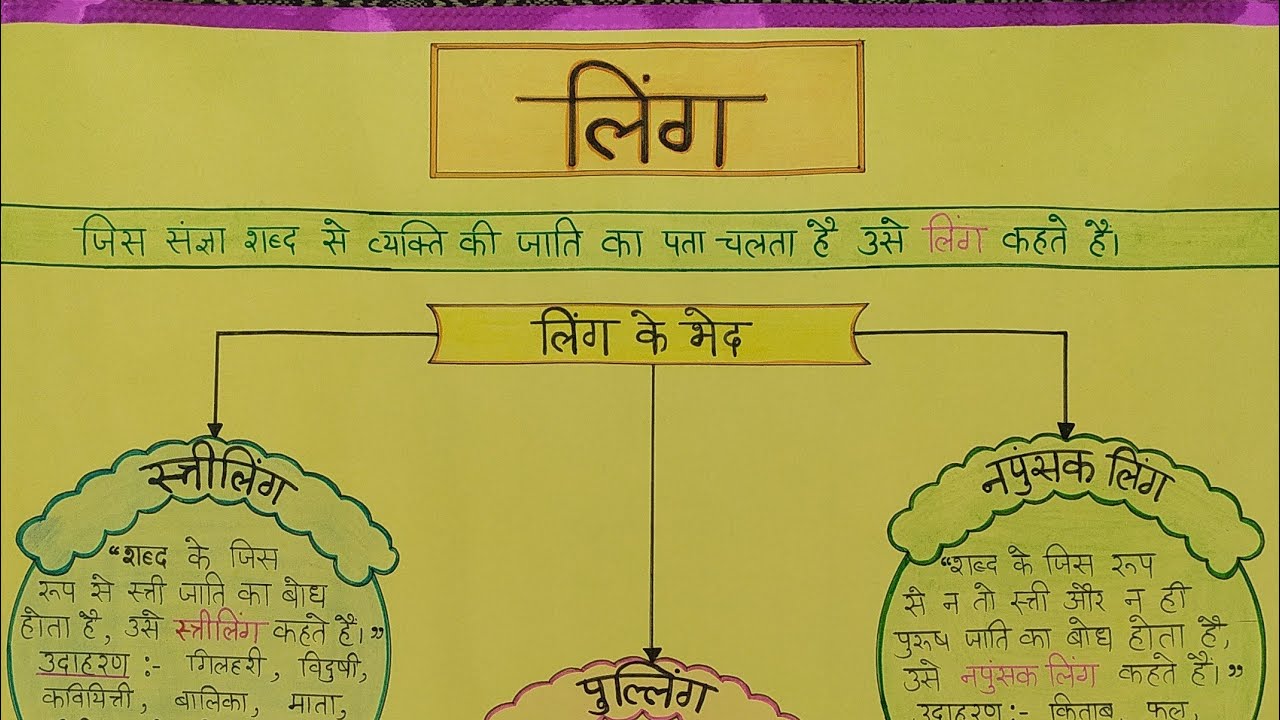 लिंग
जिस संज्ञा शब्द से व्यक्ति की जाति का पता चलता है उसे लिंग कहते है।
लिंग के भेद
स्त्रीलिंग
“शब्द के जिस
रूप से स्त्री जाति का बोध
होता है, उसे स्त्रीलिंग कहते है।”
उदाहरण :- गिलहरी, विदुषी,
कवियित्री, बालिका, माता,
पुल्लिंग
नपुंसक लिंग
“शब्द के जिस रूप
से न तो स्त्री और न ही
पुरुष जाति का बोध होता है,
उसे नपुंसक लिंग कहते है।”
उदाहरण :- किताब, फल,